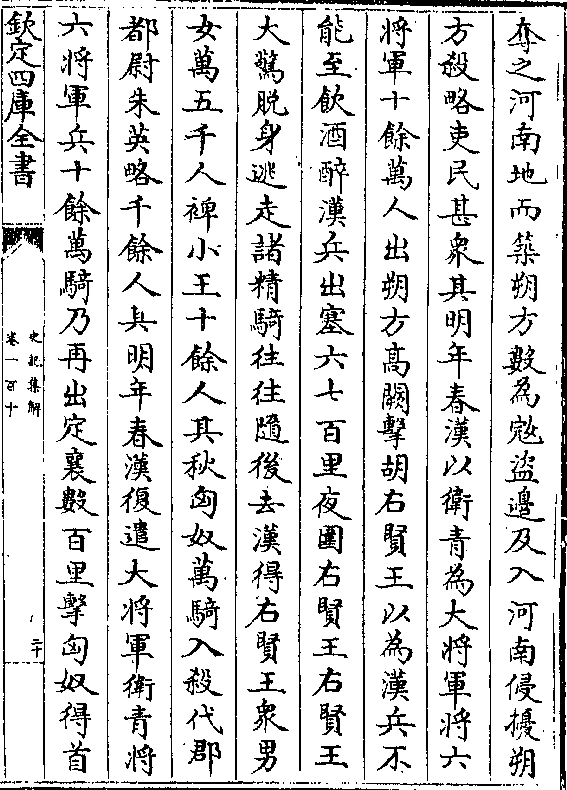 奪之河南地而築朔方數為冦盜邊及入河南侵擾朔
方殺略吏民甚衆其明年春漢以衛青為大將軍將六
將軍十餘萬人出朔方高闕擊胡右賢王以為漢兵不
能至飲酒醉漢兵出塞六七百里夜圍右賢王右賢王
大驚脫身逃走諸精騎往往隨後去漢得右賢王衆男
女萬五千人裨小王十餘人其秋匈奴萬騎入殺代郡
都尉朱英略千餘人其明年春漢復遣大將軍衛青將
六將軍兵十餘萬騎乃再出定襄數百里擊匈奴得首
欽定四庫全書
史記集解
卷一百十
二十